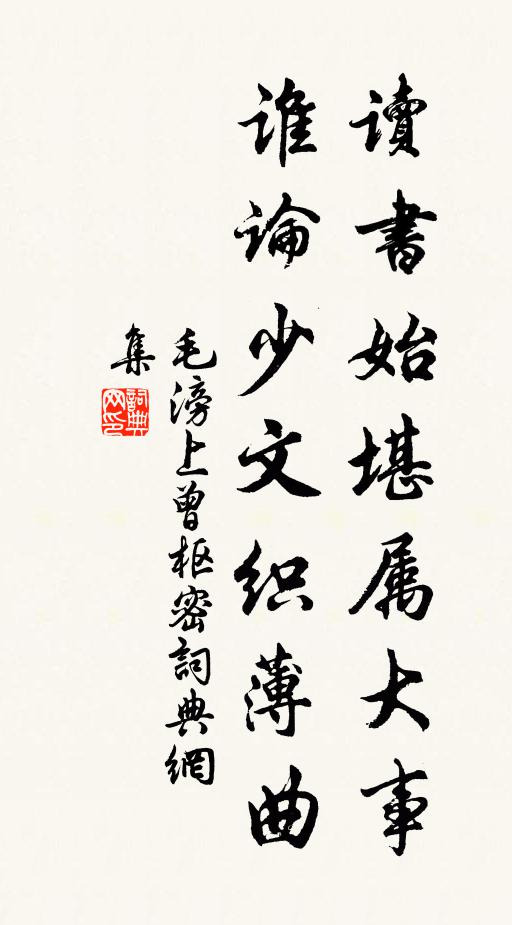 讀書始堪属大事
谁論少文织薄曲
毛滂上曾枢密詞典網
集
詞典网印